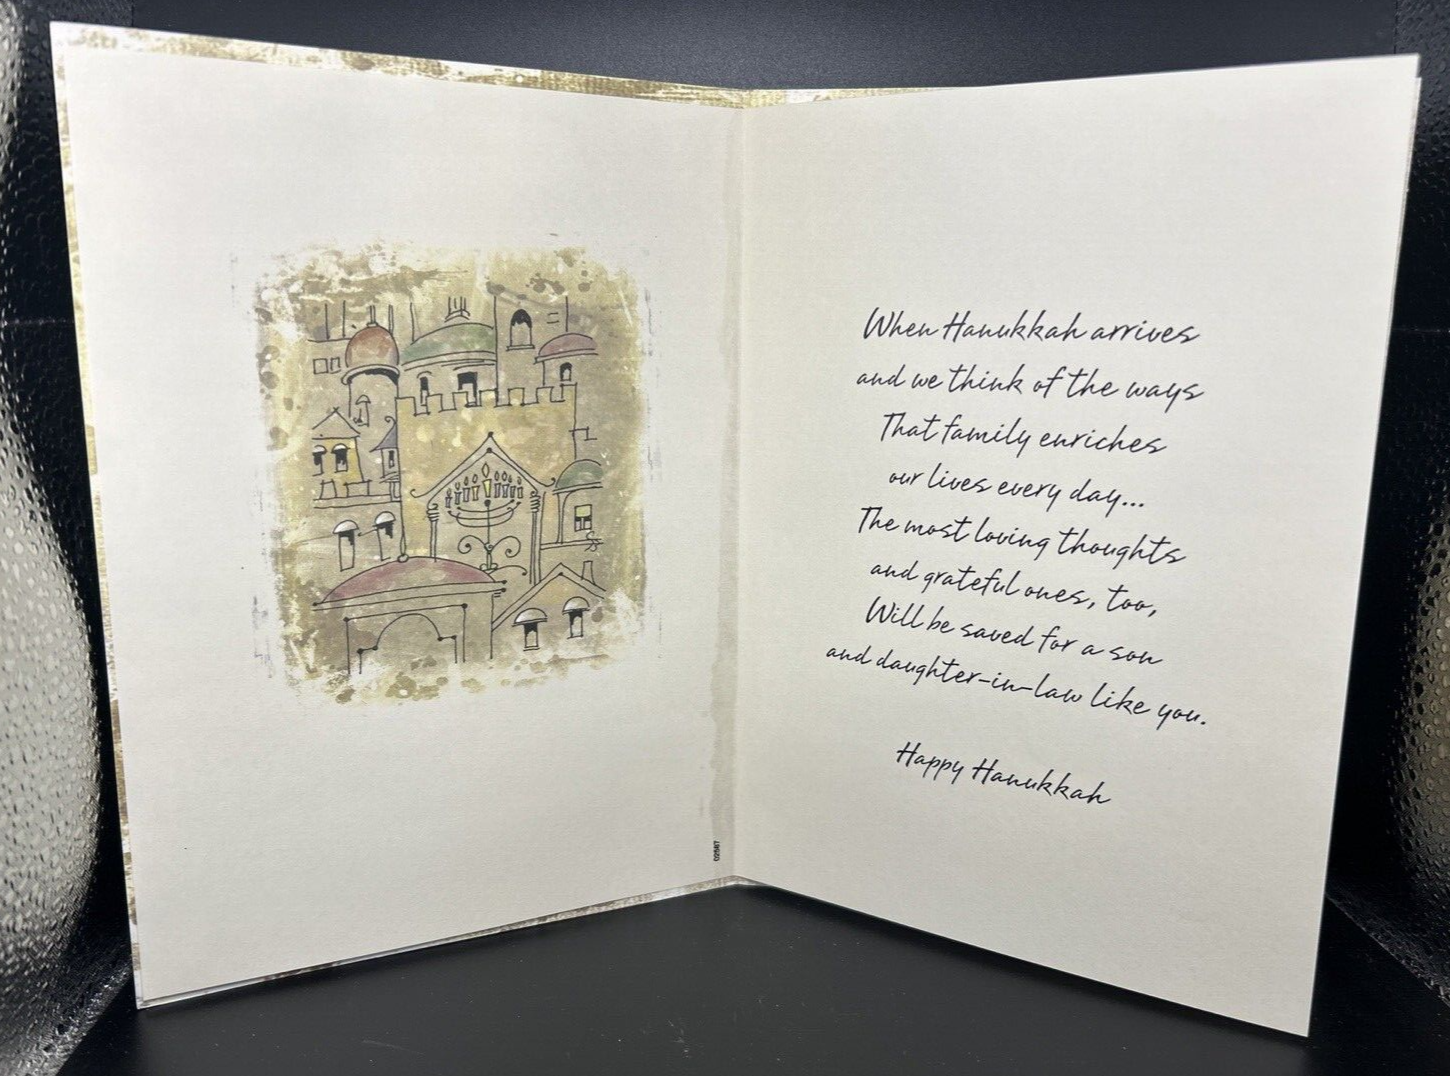 When Hanukkah arrives
and we think of the ways
That family enriches
our lives every day...
The most loving thoughts
and grateful ones, too,
Will be saved for a son
and daughter-in-law like you.
Happy Hanukkah